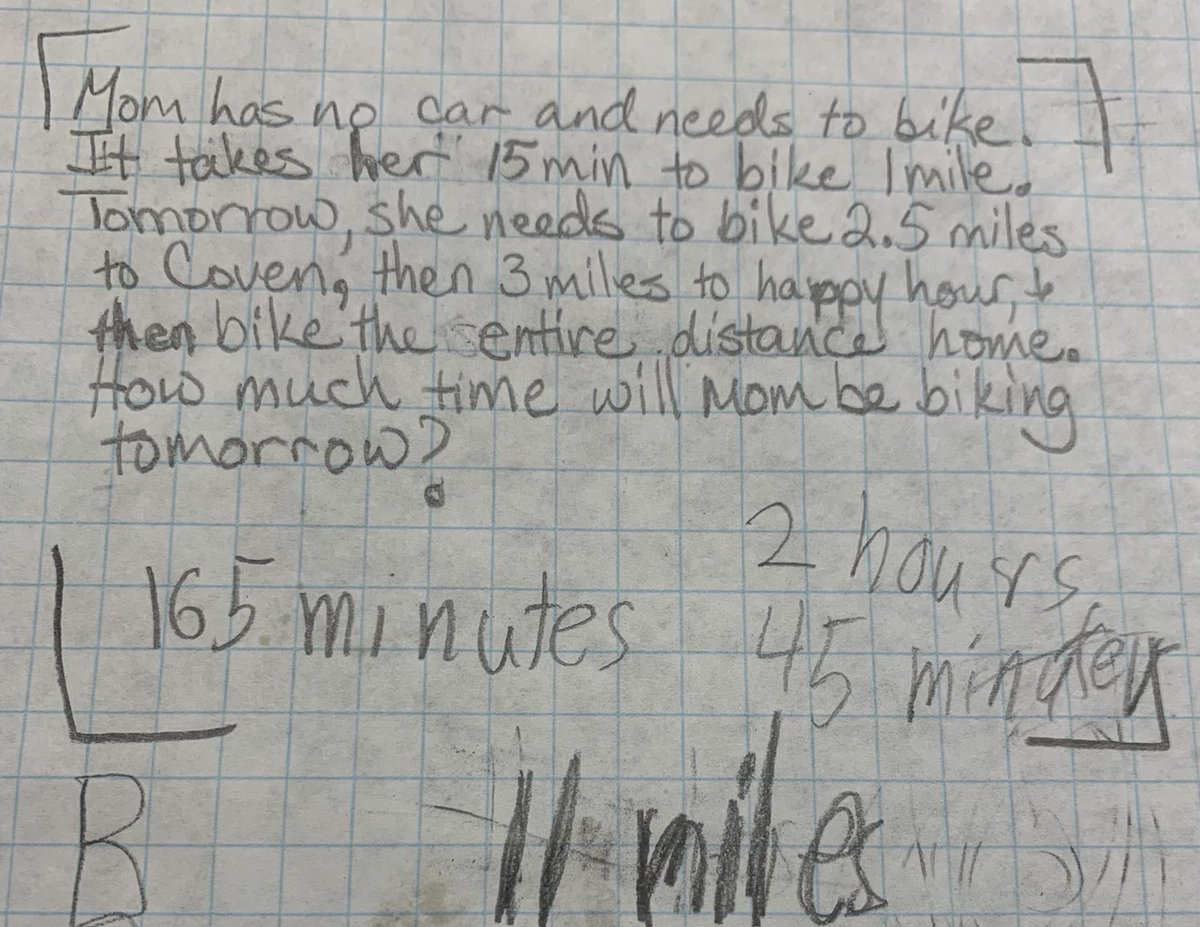 Mom has no car and needs to bike.
It takes her 15 min to bike 1 mile.
Tomorrow, she needs to bike 2.5 miles
to Coven, then 3 miles to happy hour, &
then bike the entire distance home.
How much time will Mom be biking
tomorrow?
165 minutes
2 hours
45 minutes
B
11 miles